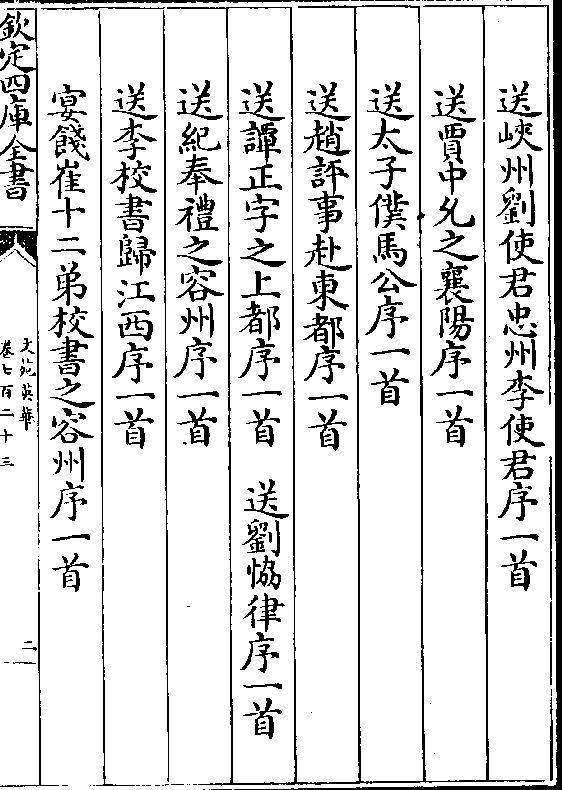 送峽州劉使君忠州李使君序一首
送賈中允之襄陽序一首
送太子僕馬公序一首
送趙評事赴東都序一首
送譚正字之上都序一首 送劉協律序一首
送紀奉禮之容州序一首
送李校書歸江西序一首
宴餞崔十二弟校書之容州序一首
欽定四庫全書
文苑英華
卷七百二十三
二